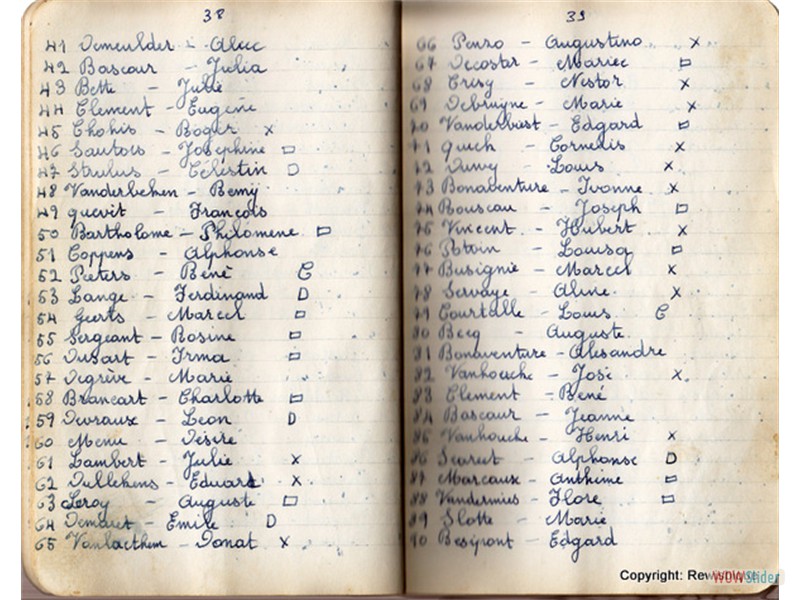 38
41 Demeulder - Alice
42 Bascour - Julia
43 Bette - Julie
44 Clement - Eugène
45 Chohis - Roger x
46 Sautois - Joséphine □
47 Strulus - Célestin D
48 Vanderbeken - Remy
49 Quévit - François
50 Bartholome - Philomène □
51 Coppens - Alphonse
52 Peeters - René C
53 Lange - Ferdinand D
54 Geerts - Marcel □
55 Sergeant - Rosine □
56 Dusart - Irma □
57 Degrève - Marie
58 Brancart - Charlotte □
59 Devraux - Leon D
60 Menu - Désiré
61 Lambert - Julie x
62 Dullekens - Eduart x
63 Leroy - Auguste □
64 Demaret - Emile D
65 Vanlaethem - Donat x
39
66 Penzo - Augustino x
67 Decoster - Mariec □
68 Cresy - Nestor x
69 Debruyne - Marie x
70 Vanderbiest - Edgard □
71 Quech - Cornelis x
72 Louis x
73 Bonaventure - Ivonne x
74 Bouscau - Joseph □
75 Vincent - Hubert x
76 Potvin - Louisa □
77 Busignie - Marcel x
78 Servaye - Aline x
79 Courtalle - Louis C
80 Becq - Auguste
81 Bonaventure - Alesandre
82 Vanhouche - José x
83 Clement - René
84 Bascour - Jeanne
85 Vanhouche - Henri x
86 Scareet - Alphonse D
87 Marcaux - Anthime □
88 Vandermies - Flore □
89 Slotte - Marie
90 Besipont - Edgard
Copyright:
WOWSlider